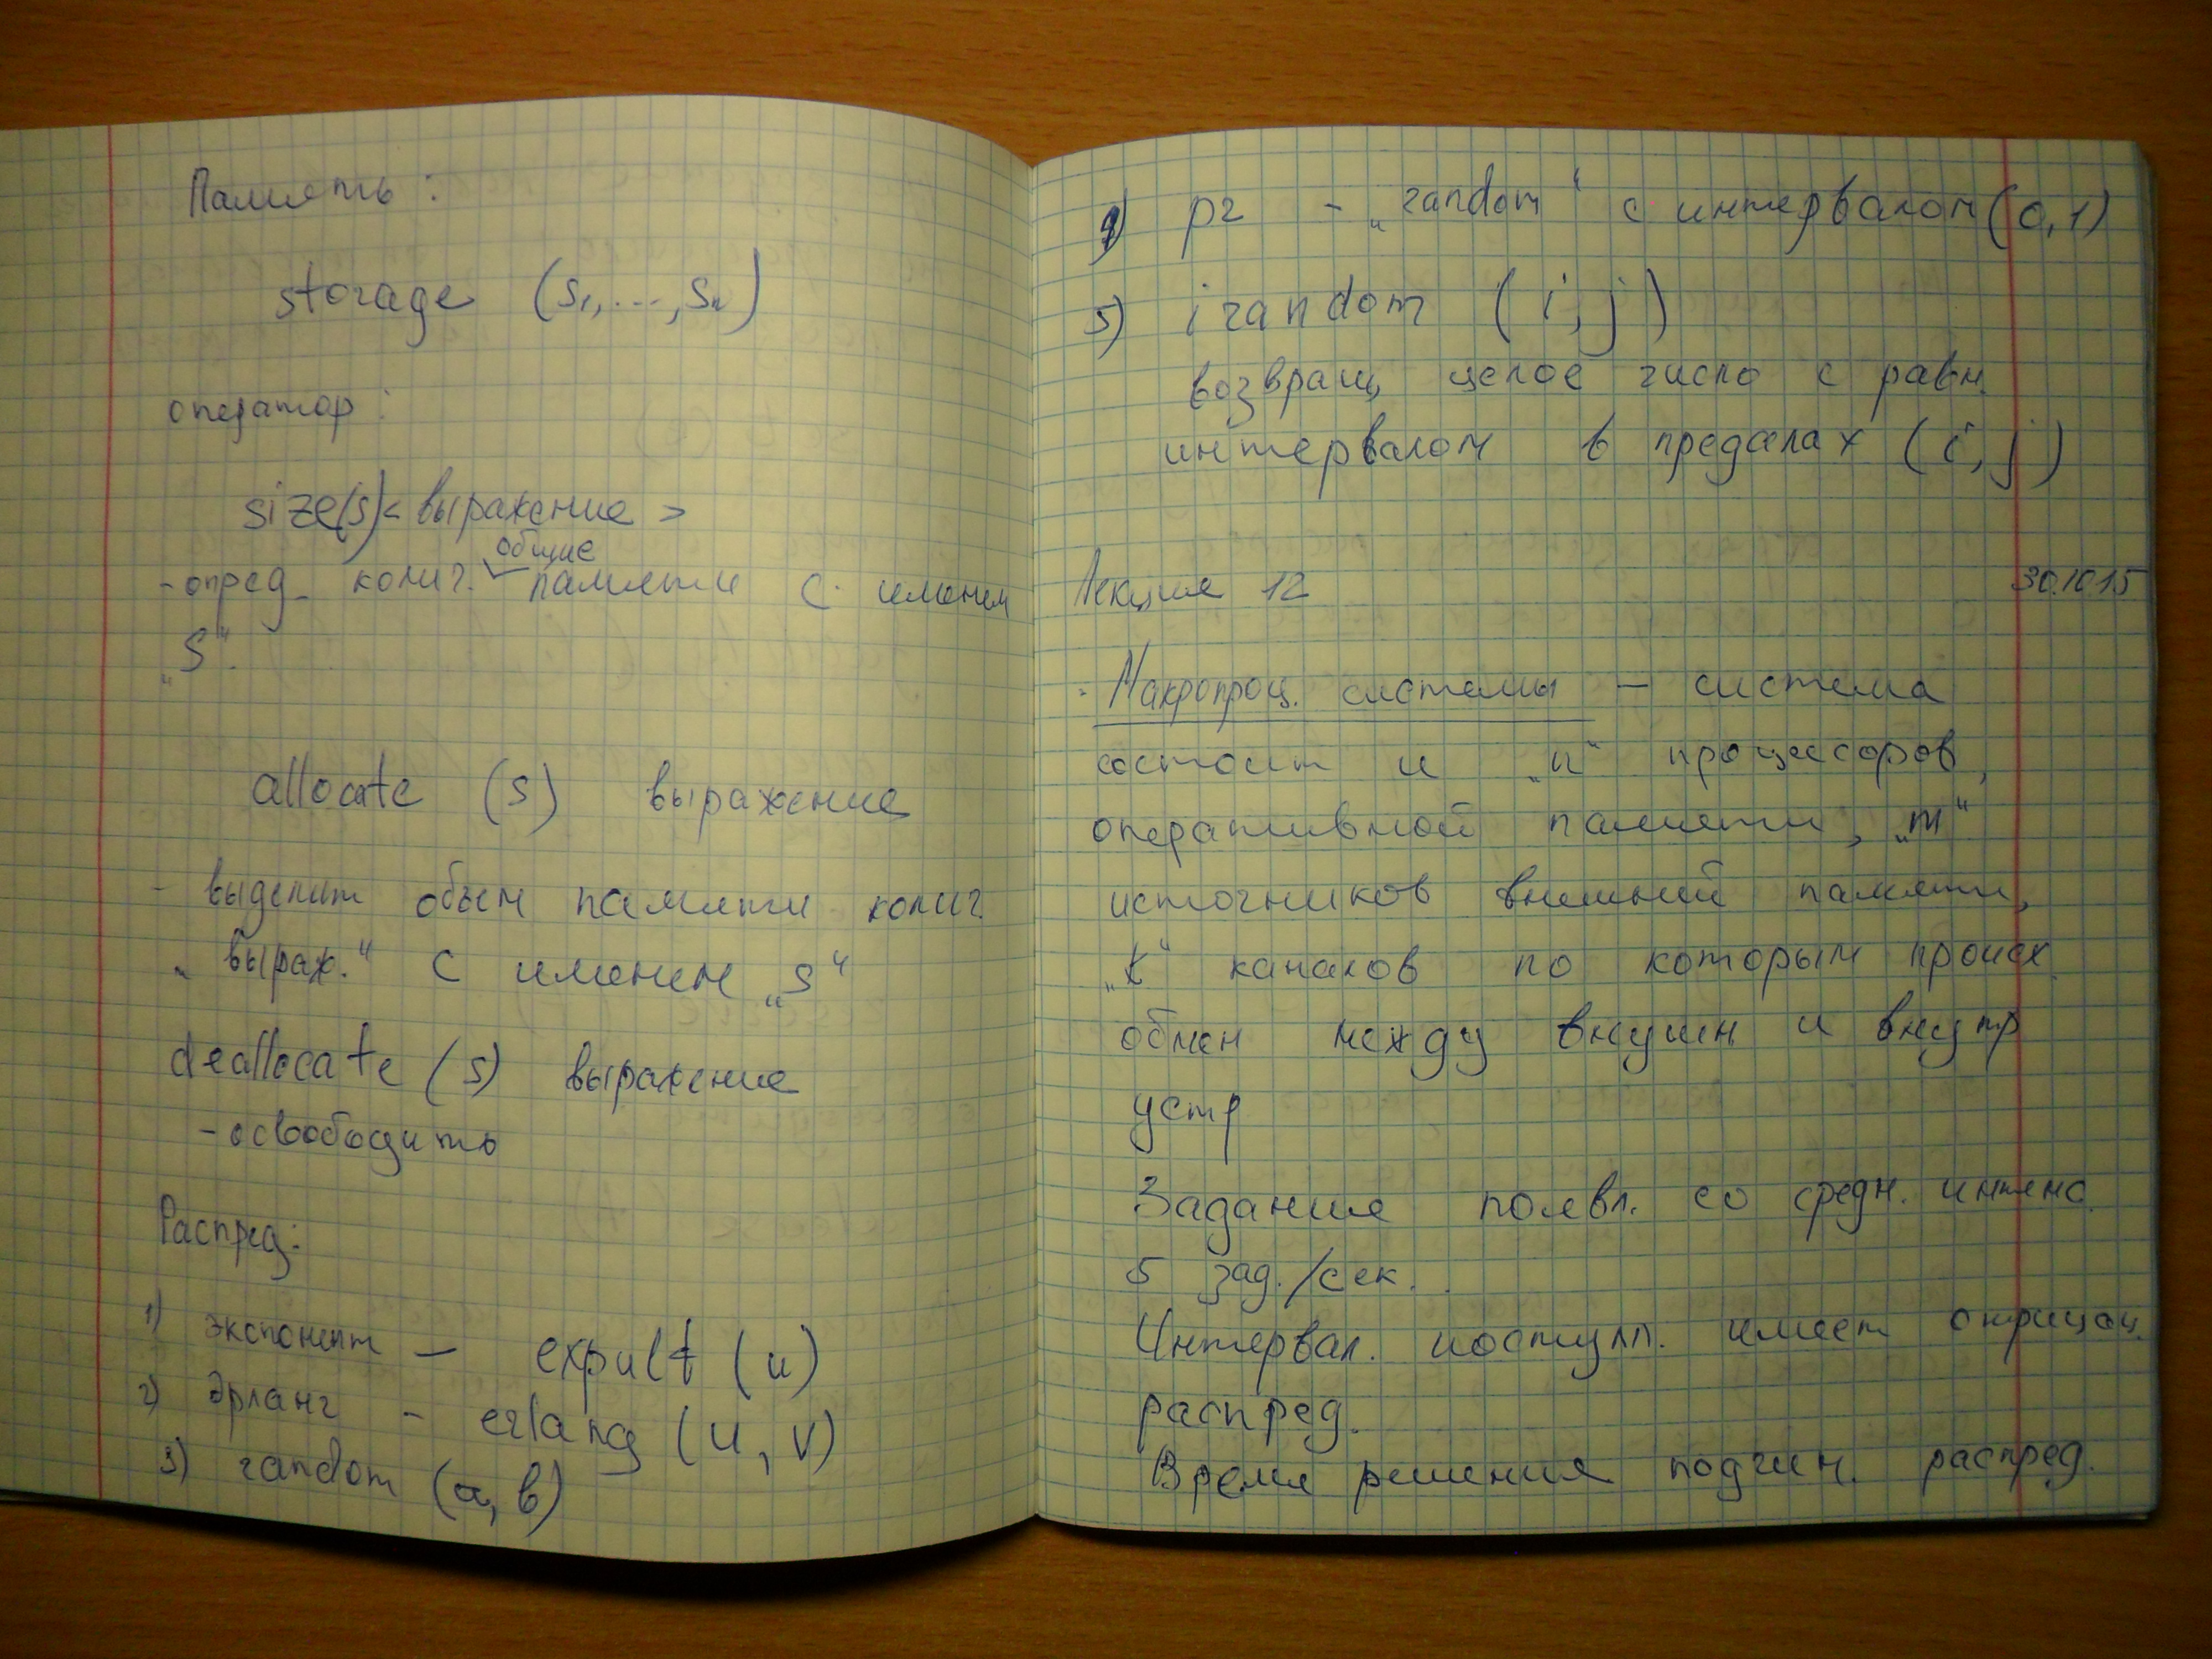 Память:
storage (s1, ..., sn)
оператор:
size(s) < выражение >
общие
- опред. колич. памяти с именем
„S“.
allocate (s) выражение
- выделит объем памяти колич.
„выраж.“ с именем „s“
deallocate (s) выражение
- освободить
Распред:
1) экспонент –
2) эрланг - erlang (u, v)
3) random (a, b)
4) рг - „random“ с интервалом (0,1)
5) irandom (i, j)
возвращ. целое число с равн.
интервалом в пределах (i, j)
Лекция 12 30.10.15
Макропроц. системы – система
состоит и „n“ процессоров,
оперативной памяти, „m“
источников внешней памяти,
„k“ каналов по которым происх.
обмен между внешн и внутр
устр
Задание появл. со средн. интенс.
5 зад./сек.
Интервал. поступл. имеет
распред.
Время решения подчин. распред.